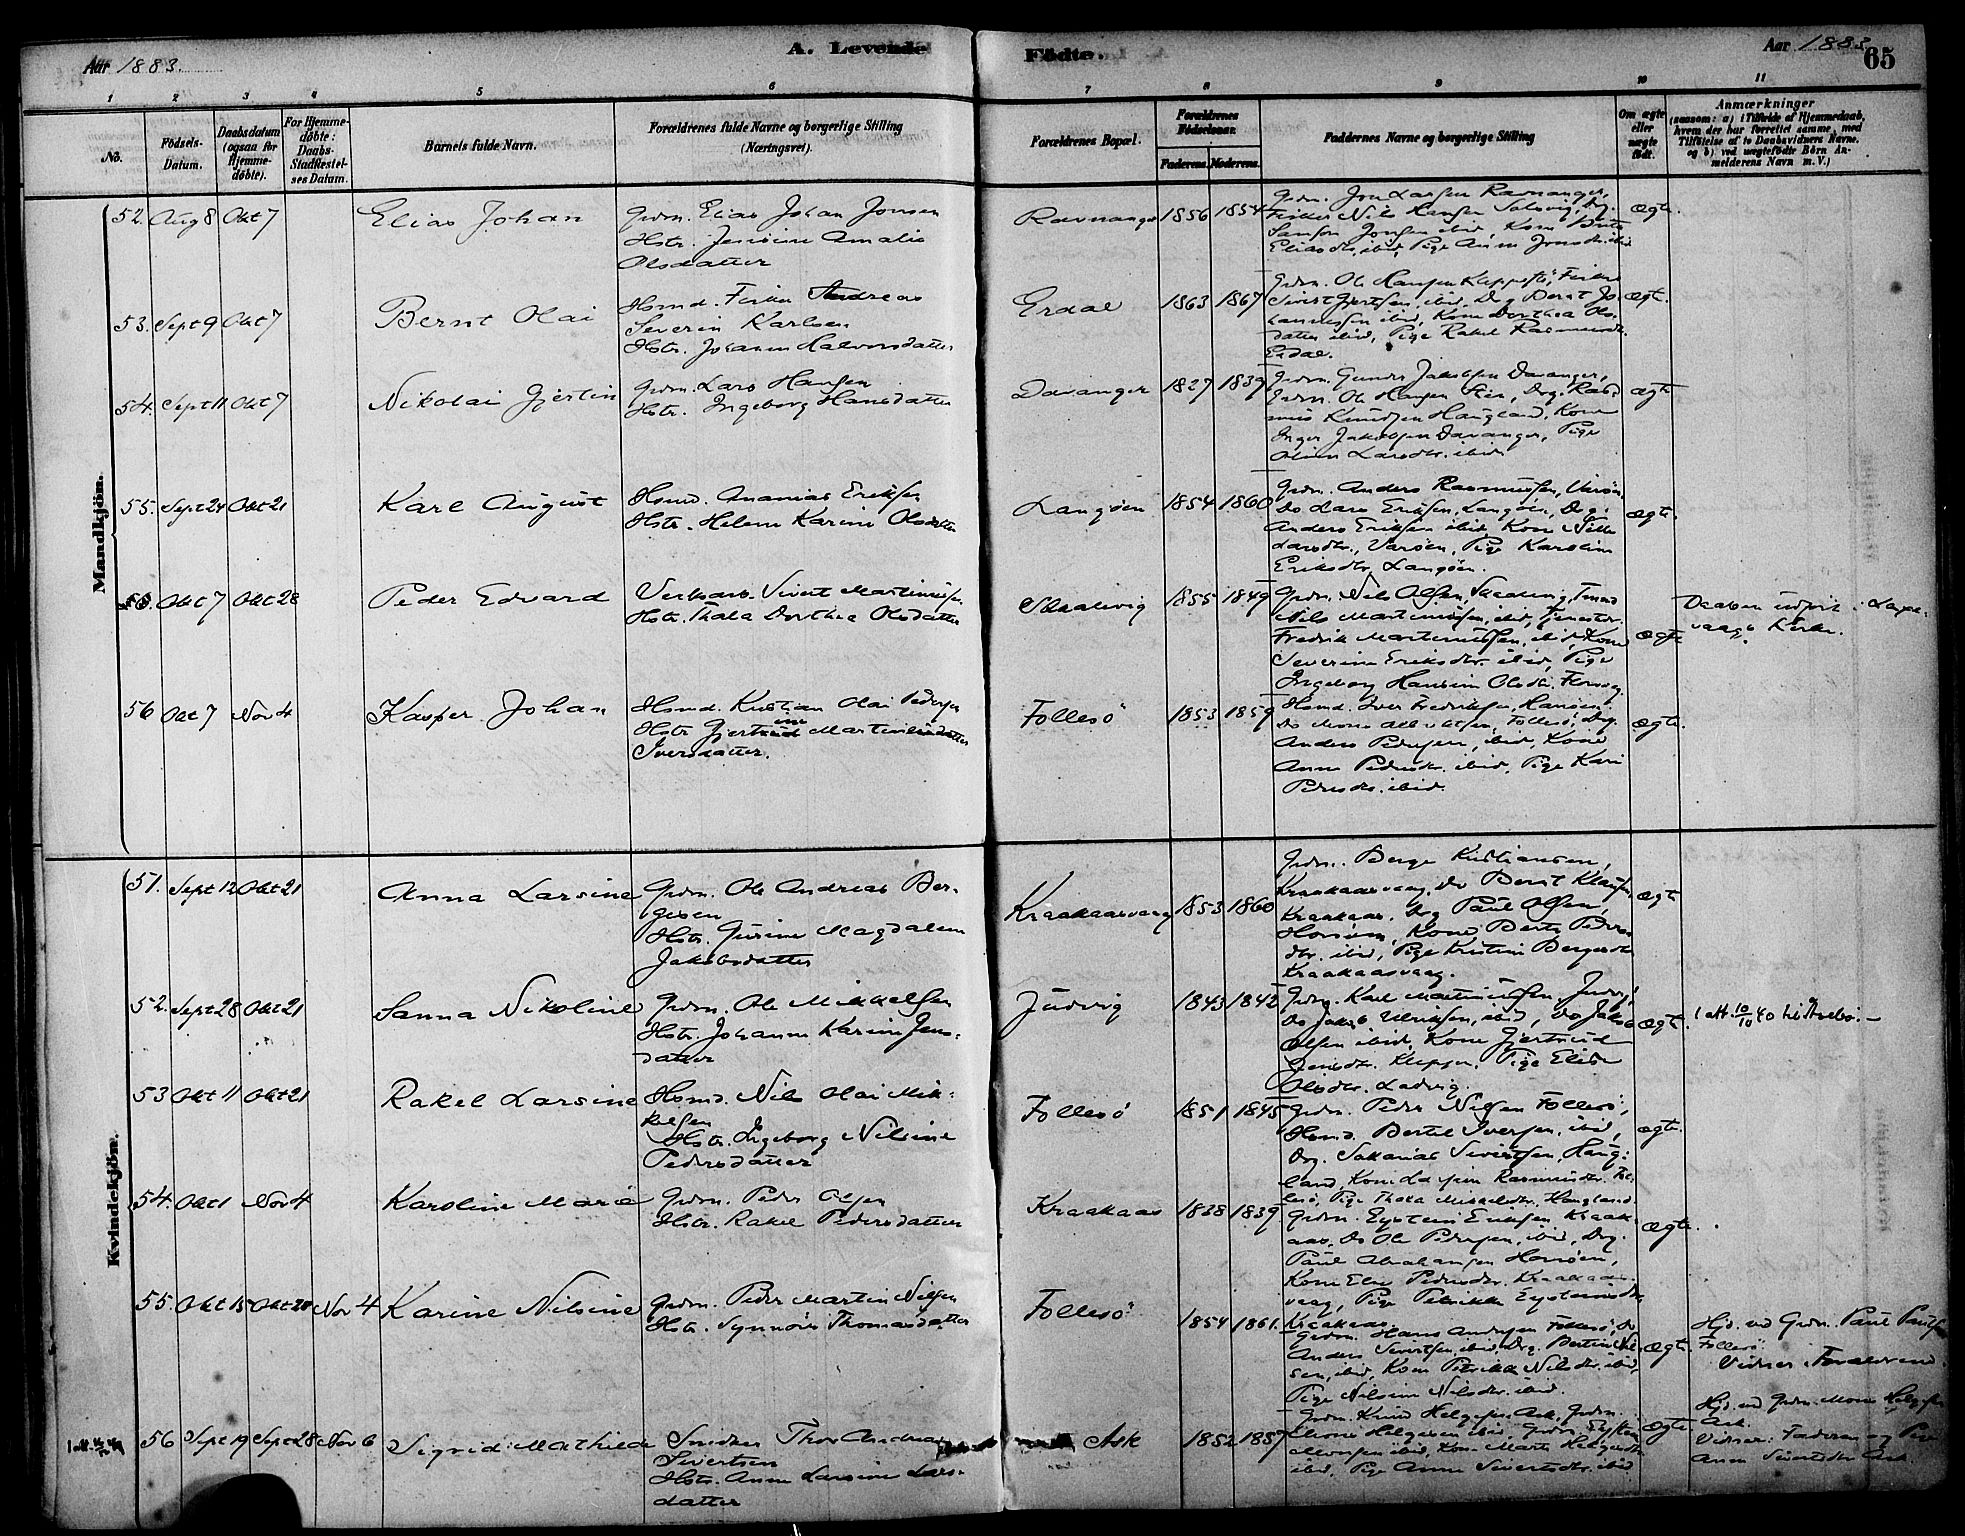 Aar 1883.
A. Levende Födte.
Aar 1883
65
1 2 3 4 5 6 7 8 9 10 11
No.
Födsels-Datum.
Daabsdatum (ogsaa for Hjemme-döbte).
For Hjemme-döbte: Daabs-Stadfæstel-ses Datum.
Barnets fulde Navn.
Forældrenes fulde Navne og borgerlige Stilling (Næringsvei).
Forældrenes Bopæl.
Forældrenes Födselsaar.
Faderens. Moderens.
Faddernes Navne og borgerlige Stilling
Om ægte eller uægte födt.
Anmærkninger
(saasom: a) i Tilfælde af Hjemmedaab,
hvem der har forrettet samme, med
Tilföielse af to Daabsvidners Navne.
og b) ved uægtefödte Börn An-
melderens Navn m. V.)
Mandkjön.
52. Aug 8 Okt 7 Elias Johan
Grdm. Elias Johan Jonsen
Hstr. Jensine Amalie
Olsdatter
Ravnanger 1856 1854
Grdm. Jon Larsen Ravnanger,
Fisker Nils Hansen Solsvig, Drg.
Samson Jonsen ibid, Kone Brita
Eliasdtr. ibid, Pige Anna Jonsdtr. ibid
ægte.
53. Sept 9 Okt 7 Bernt Olai
Hsmd. Fisker Andreas
Severin Karlsen
Hstr. Johanna Halvorsdatter
Erdal 1863 1867
Grdm. Ole Hansen Kleppestö, Fisker
Sivert Gjertsen ibid, Drg Bernt Jo-
hannessen ibid, Kone Dorthea Ols-
datter ibid, Pige Rakel Rasmusdtr.
Erdal.
ægte.
54. Sept 11 Okt 7 Nikolai Gjertin
Grdm. Lars Hansen
Hstr. Ingeborg Hansdatter
Davanger 1827 1839
Grdm. Gunder Jakobsen Davanger,
Grdm. Ole Hansen, Drg. Ras-
mus Knudsen Haugland, Kone
Inger Jakobsen Davanger, Pige
Oline Larsdtr. ibid
ægte
55. Sept 24 Okt 21 Karl August
Hsmd. Ananias Eriksen
Hstr. Helene Karine Olsdatter
Langöen 1854 1860
Grdm. Anders Rasmussen,
Do Lars Eriksen, Langöen, Drg.
Anders Eriksen ibid, Kone
Larsdtr., Pige Karoline
Eriksdtr. Langöen.
ægte.
Okt 7 Okt 28 Peder Edvard
Sivert Martinussen
Hstr. Thala Dorthea Olsdatter
Skaalvig 1855 1849
Grdm. Nils Olsen, Skaalevig,
Nils Martinussen, ibid, Tjenestdr.
Fredrik Martinussen, ibid, Kone
Severine Eriksdtr. ibid, Pige
Ingeborg Hansine Olsdtr. Florvaag.
ægte
Daaben udfört i Laxe-
vaags Kirke.
56 Okt 7 Nov 4 Kasper Johan
Hsmd. Kristian Olai Pedersen
Hstr Gjertine Martine
Iversdatter.
Follesö 1853 1859
Hsmd. Iver Fredriksen, Hanöen,
Do Mons Albrektsen, Follesö, Drg.
Anders Pedersen, ibid, Kone
Anna Pedersdtr. ibid, Pige Kari
Pedersdtr. ibid.
ægte.
Kvindekjön.
51. Sept 12 Okt 21 Anna Larsine
Grdm. Ole Andreas Ber-
gesen
Hstr. Gurine Magdalena
Jakobsdatter
Kraakaasvaag 1853 1860
Grdm. Berge Kristiansen,
Kraakaasvaag, Do Bernt Klausen,
Kraakaas. Drg Paul Olsen,
Horsöen, Kone Berta Peders-
dtr. ibid, Pige Kristine Bergesdtr.
Kraakaasvaag.
ægte
52. Sept 28 Okt 21 Sanna Nikoline
Grdm. Ole Mikkelsen
Hstr. Johanna Karine Jens-
datter
Judvig 1843 1842
Grdm. Karl Martinussen Judvig,
Do Jakob Ulriksen, ibid, Do Jakob
Olsen ibid, Kone Gjertrud
Jensdtr. Kleppe. Pige Elise
Olsdtr. Ladvig.
ægte.
1 att. 10/10 40
53 Okt 11 Okt 21 Rakel Larsine
Hsmd. Nils Olai Mik-
kelsen
Hstr. Ingeborg Nilsine
Pedersdatter
Follesö 1851 1845
Grdm. Peder Nilsen Follesö,
Hsmd. Bertel Iversen, ibid,
Drg. Sakarias Sivertsen, Haug-
land, Kone Rasmusdtr. Fol-
lesö, Pige Thala Mikkelsdtr. Haugland.
ægte.
54. Okt 1 Nov 4 Karoline Marie
Grdm. Peder Olsen
Hstr. Rakel Pedersdatter
Kraakaas 1838 1839
Grdm. Eystein Eriksen, Kraak-
aas, Do Ole Pedersen, ibid, Drg.
Paul Abrahamsen Horsöen,
Kone Else Pedersdtr. Kraakaas-
vaag, Pige Petrikke Eysteinsdtr.
Kraakaas.
ægte.
55. Okt 15 Okt 20 Nov 4 Karine Nilsine
Grdm. Peder Martin Nilsen
Hstr. Synnöve Thomasdatter
Follesö 1854 1861.
Grdm. Hans Andersen Follesö, Do
Anders Sivertsen, ibid, Drg. Bertin Nil-
sen, ibid, Kone Petrikke Nilsdtr. ibid,
Pige Nilsine Nilsdtr. ibid.
ægte.
Hjd. ved Grdm. Paul Paulsen
Follesö.
Vidner: Forældrene.
56 Sept 19 Sept 28 Nov 6 Sigrid Mathilde
Snedker Thor Andreas
Sivertsen
Hstr. Anna Larsine Lars-
datter
Ask 1852 1857
Grdm. Knud Helgesen Ask, Grdm.
Mons Helgesen ibid, Grdm.
Monsen ibid, Kone Marta Helgesdtr.
ibid, Pige Anna Sivertsdtr. ibid
ægte
Hjd. ved Grdm. Mons Helgesen
Ask.
Vidner: Faderen og Pige
Anna Sivertsdtr Ask.